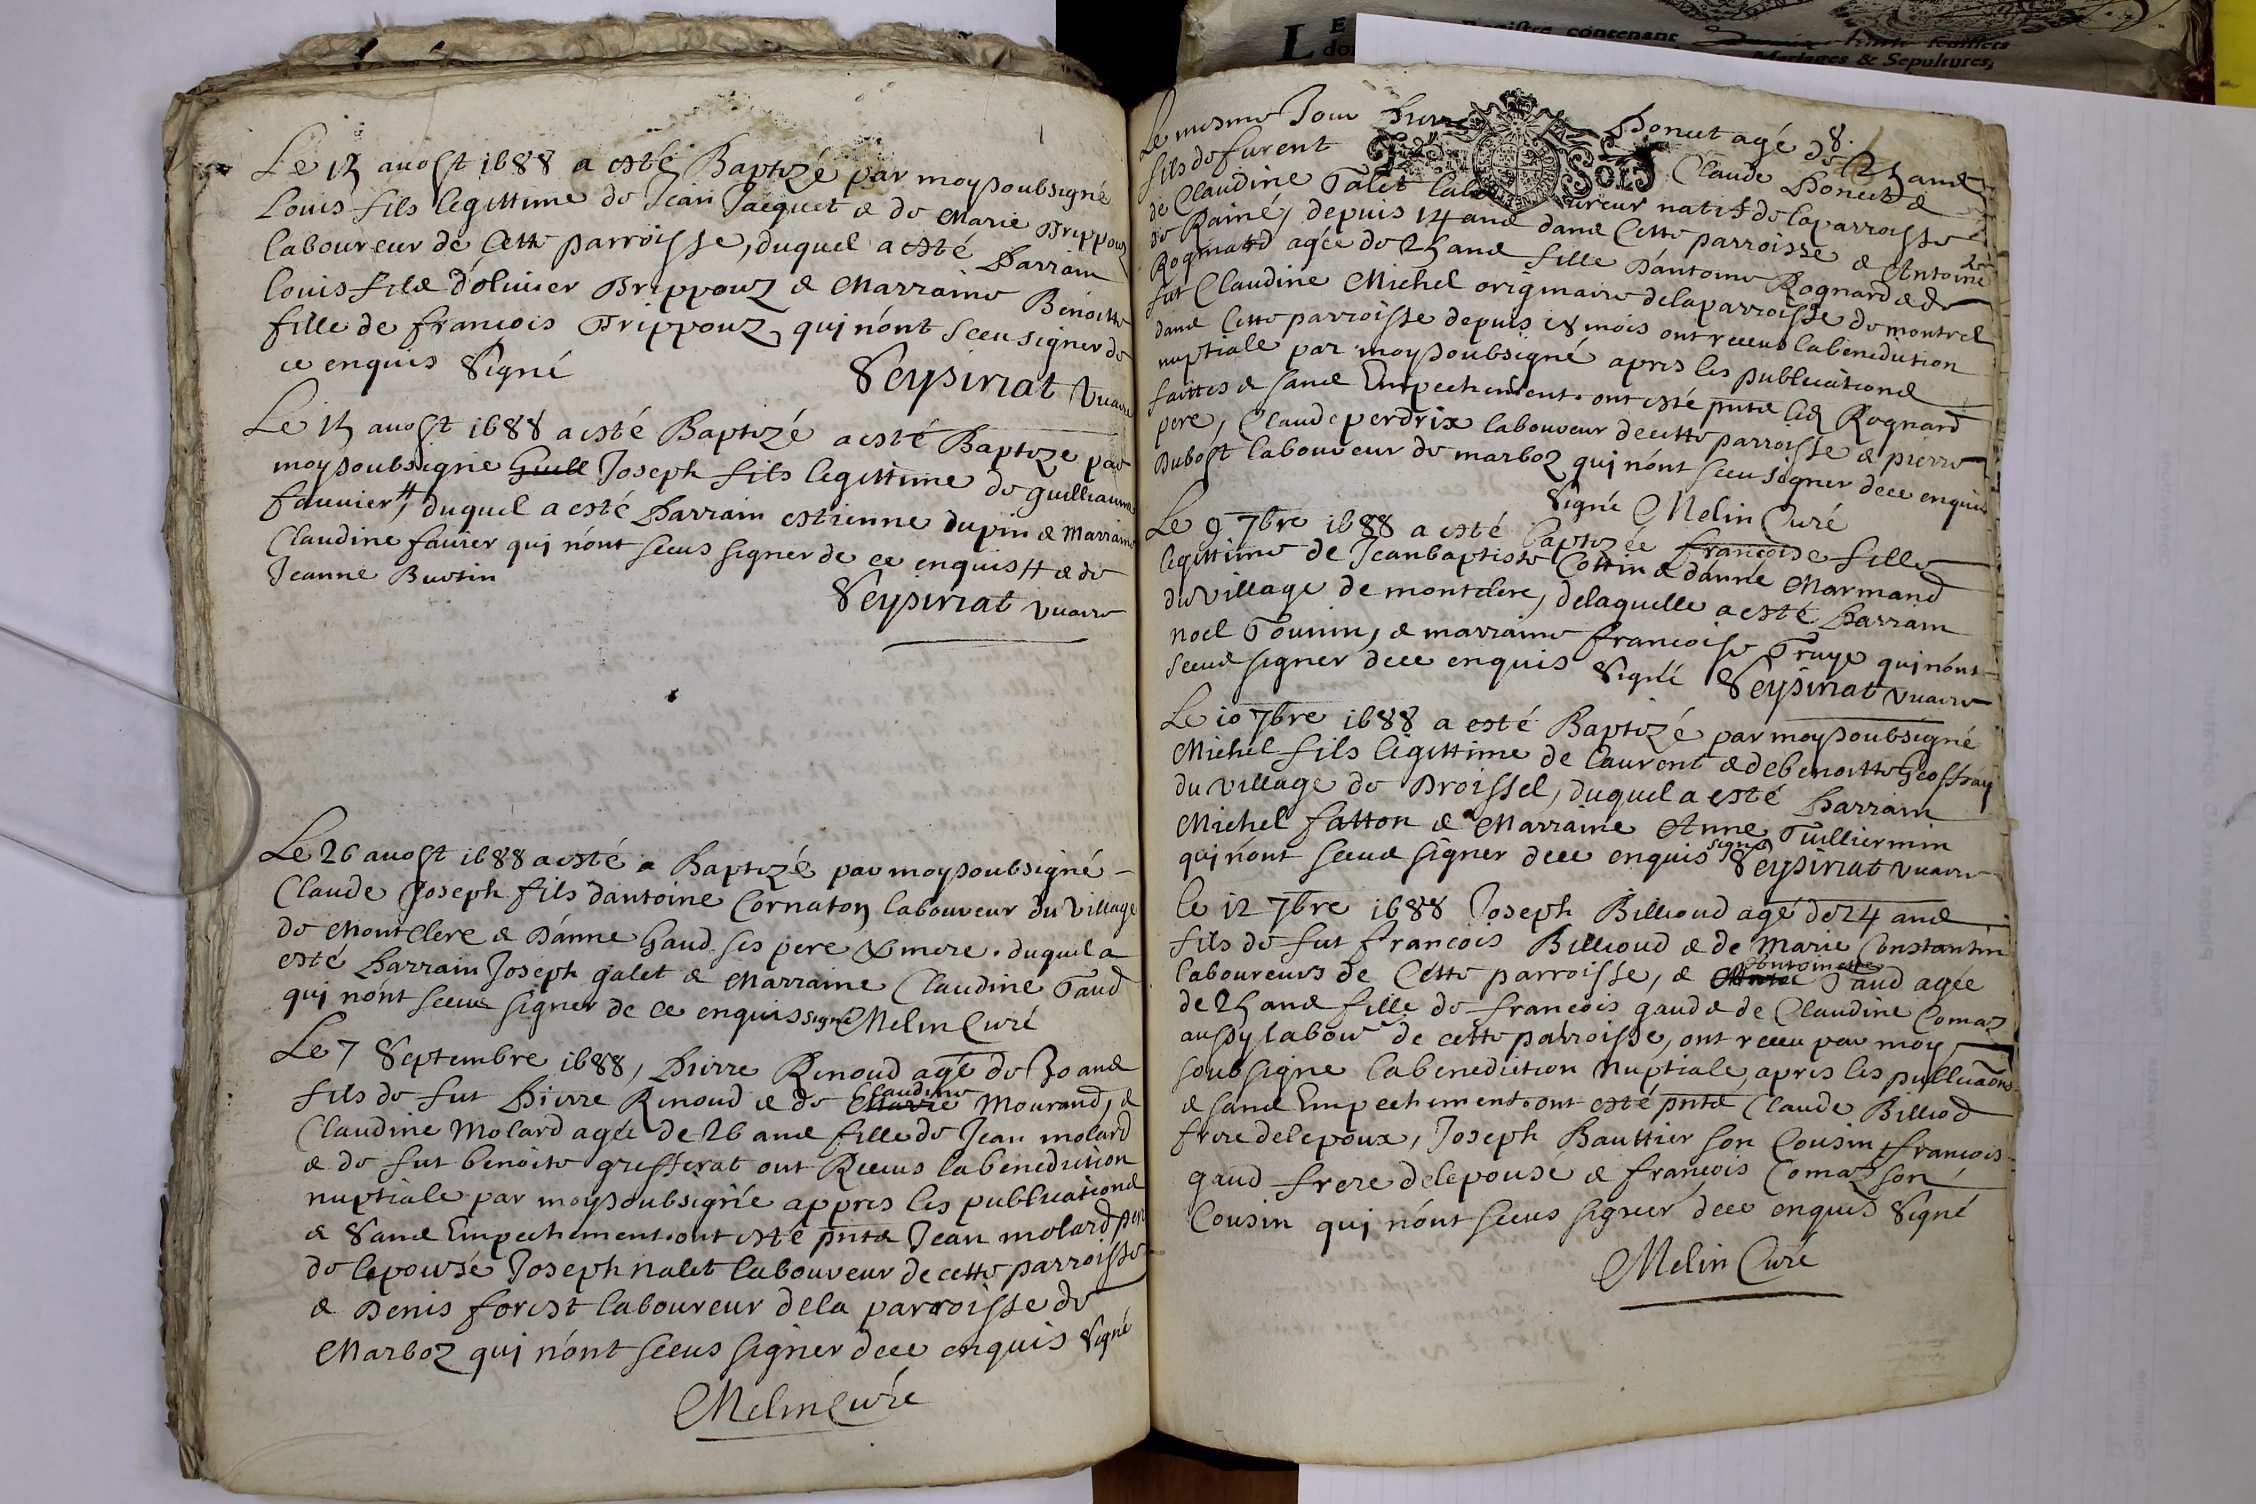 Le 15 aoust 1688 a esté Baptizé par moy soubsigné
Louis fils legittime de Jean Jacquet & de Marie Trippouz
laboureur de Cette parroisse, duquel a esté Parrain
louis fils d'oliuier Trippouz & Marraine Benoitte
fille de francois Trippouz, qui n'ont sceu signer de
ce enquis Signé
Seysiriat vicaire
Le 15 aoust 1688 a esté Baptizé a esté Baptize par
moy soubsigne Guill Joseph fils legittime de guilliaume
fauuier #, duquel a esté Parrain estienne dupin & Marraine
Claudine fauier qui n'ont sceus signer de ce enquis # & de
Jeanne Buotin
Seysiriat vicaire
Le 26 aoust 1688 a esté a Baptizé par moy soubsigné
Claude Joseph fils d'antoine Cornaton laboureur du village
de Mont Clere & d'anne Gaud ses pere & mere. duquel a
esté Parrain Joseph galet & Marraine Claudine Gaud
qui n'ont sceus signer de ce enquis signé Melin Curé
Le 7 Septembre 1688, Pierre Renoud agé de 30 ans
fils de fut Pierre Renoud & de Marie Claudine Mourand, &
Claudine Molard agée de 26 ans fille de Jean molard
& de fut benoite grifferat ont Receus la benediction
nuptiale par moy soubsignée appres les publications
& Sans Empechement. ont esté pnts Jean molard pere
de lepouse Joseph nalet laboureur de cette parroisse
& Denis forest laboureur dela parroisse de
Marboz qui n'ont sceus signer dece enquis Signé
Melin Curé
8.
Le mesme Jour Pierre Ponect agé de 25 ans
fils de furent Claude Ponect &
de Claudine Palet laboureur natif de la parroisse
de Rainé, depuis 14 ans dans Cette parroisse & Antoine
Rognard agée de 25 ans fille D'antoine Rognard & de
fut Claudine Michel originaire dela parroisse de montrel
dans Cette parroisse depuis 18 mois ont receus la benediction
nuptiale par moy soubsigné apres les publications
faittes & sans Empechement. ont esté pnts led Rognard
pere, Claude perdrix laboureur de cette parroisse & pierre
Dubost laboureur de marboz qui n'ont sceu signer dece enquis
Signé Melin Curé
Le 9 7bre 1688 a esté baptizée francoise fille
legittime de Jean baptiste Cottin & d'anne Marmand
du village de montclere, delaquelle a esté Parrain
noel Tounin, & marraine francoise Truye qui n'ont
sceus signer dece enquis Signé Seysiriat vicaire
Le 10 7bre 1688 a esté Baptizé par moy soubsigné
Michel fils legittime de laurent & de benoitte Geoffray
du village de Droissel, duquel a esté Parrain
Michel fatton & Marraine Anne Tuilliermin
qui n'ont sceus signer dece enquis signé Seysiriat vicaire
Le 12 7bre 1688 Joseph Billioud agé de 24 ans
fils de fut francois Billioud & de Marie Constantin
laboureurs de Cette parroisse, & Antoinette Gaud agée
de 25 ans fille de francois gaud & de Claudine Comaz
aussy labour de cette parroisse, ont receu par moy
soubsigne la benediction Nuptiale apres les publications
& sans Empechement. ont esté pnts Claude Billiod
frere de lepoux, Joseph Bauttier son Cousin, francois
gaud frere de lepouse & francois Comaz son
Cousin qui n'ont sceus signer dece enquis Signé
Melin Curé
contenant
feuillets
Mariages & Sepultures,